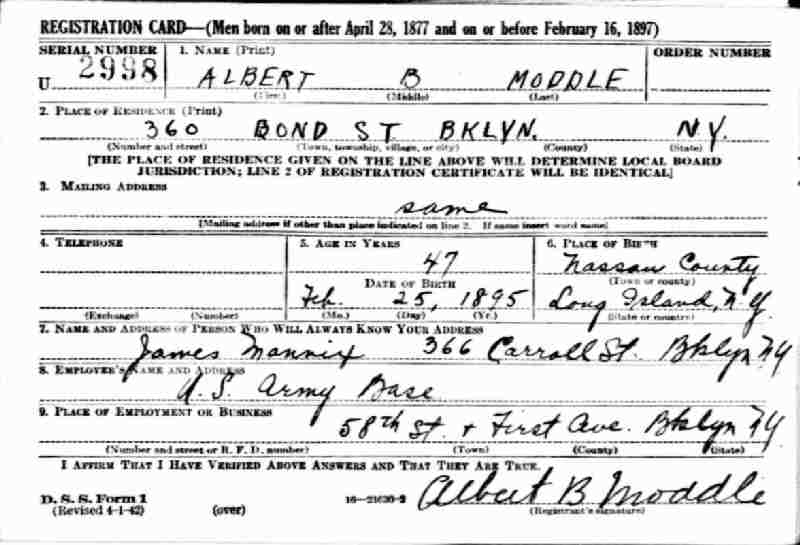 REGISTRATION CARD—(Men born on or after April 28, 1877 and on or before February 16, 1897)
SERIAL NUMBER 1. NAME (Print) ORDER NUMBER
U 2998 ALBERT B MODDLE
(First) (Middle) (Last)
2. PLACE OF RESIDENCE (Print)
360 BOND ST BKLYN. N.Y.
(Number and street) (Town, township, village, or city) (County) (State)
[THE PLACE OF RESIDENCE GIVEN ON THE LINE ABOVE WILL DETERMINE LOCAL BOARD
JURISDICTION; LINE 2 OF REGISTRATION CERTIFICATE WILL BE IDENTICAL]
3. MAILING ADDRESS
same
[Mailing address if other than place indicated on line 2. If same insert word same]
4. TELEPHONE 5. AGE IN YEARS 6. PLACE OF BIRTH
47 Nassau County
DATE OF BIRTH (Town or county)
Feb. 25, 1895 Long Island, N.Y.
(Exchange) (Number) (Mo.) (Day) (Yr.) (State or country)
7. NAME AND ADDRESS OF PERSON WHO WILL ALWAYS KNOW YOUR ADDRESS
James Mannix 366 Carroll St. Bklyn NY
8. EMPLOYER'S NAME AND ADDRESS
U.S. Army Base
9. PLACE OF EMPLOYMENT OR BUSINESS
58th St. + First Ave. Bklyn NY
(Number and street or R. F. D. number) (Town) (County) (State)
I AFFIRM THAT I HAVE VERIFIED ABOVE ANSWERS AND THAT THEY ARE TRUE.
D. S. S. Form 1 16—21630-2 Albert B Moddle
(Revised 4-1-42) (over) (Registrant's signature)